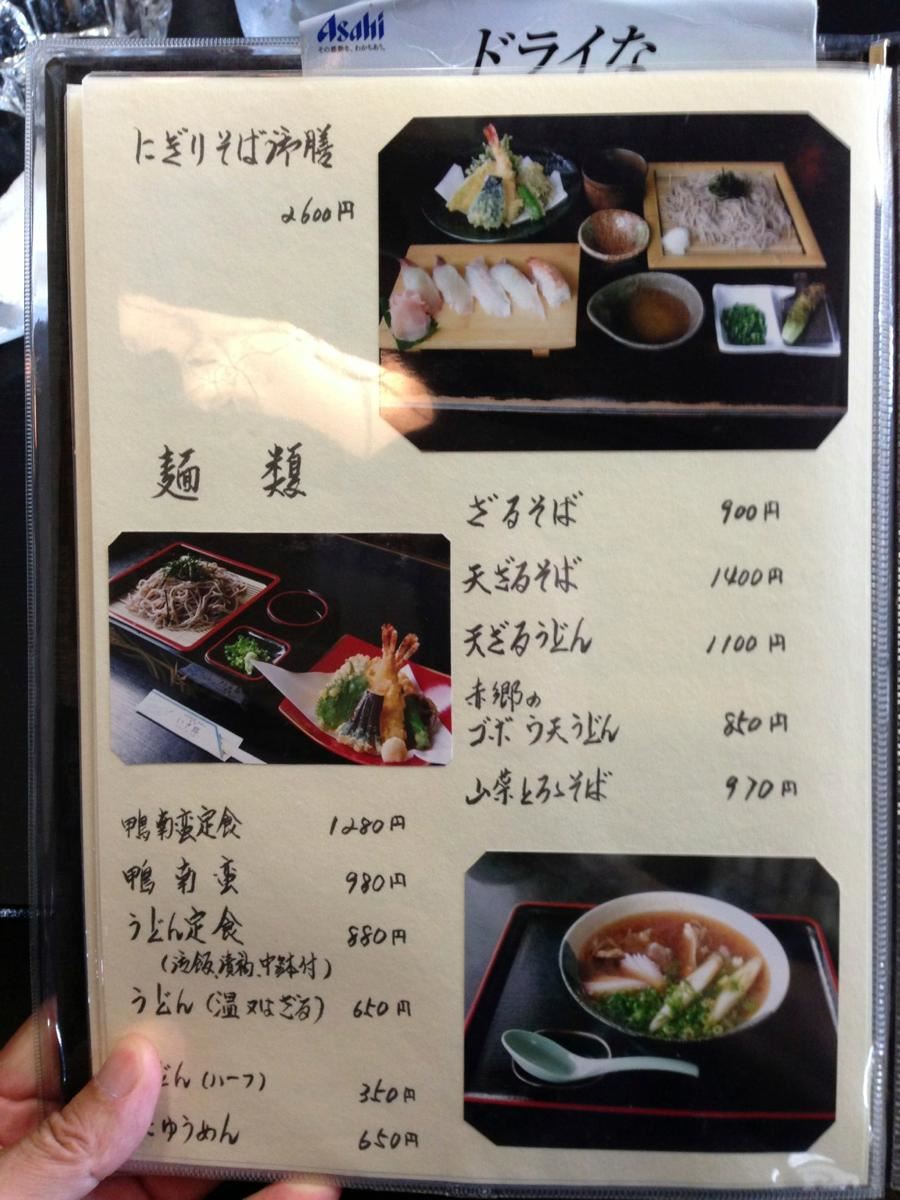 Asahi
その感動を、わかちあう。
ドライな
にぎりそば御膳
2600円
麺 類
ざるそば 900円
天ざるそば 1400円
天ざるうどん 1100円
赤郷の
ゴボウ天うどん 850円
山菜とろろそば 970円
鴨南蛮定食 1280円
鴨南蛮 980円
うどん定食 880円
(御飯、漬物、中鉢付)
うどん(温又はざる) 650円
どん(ハーフ) 350円
にゅうめん 650円